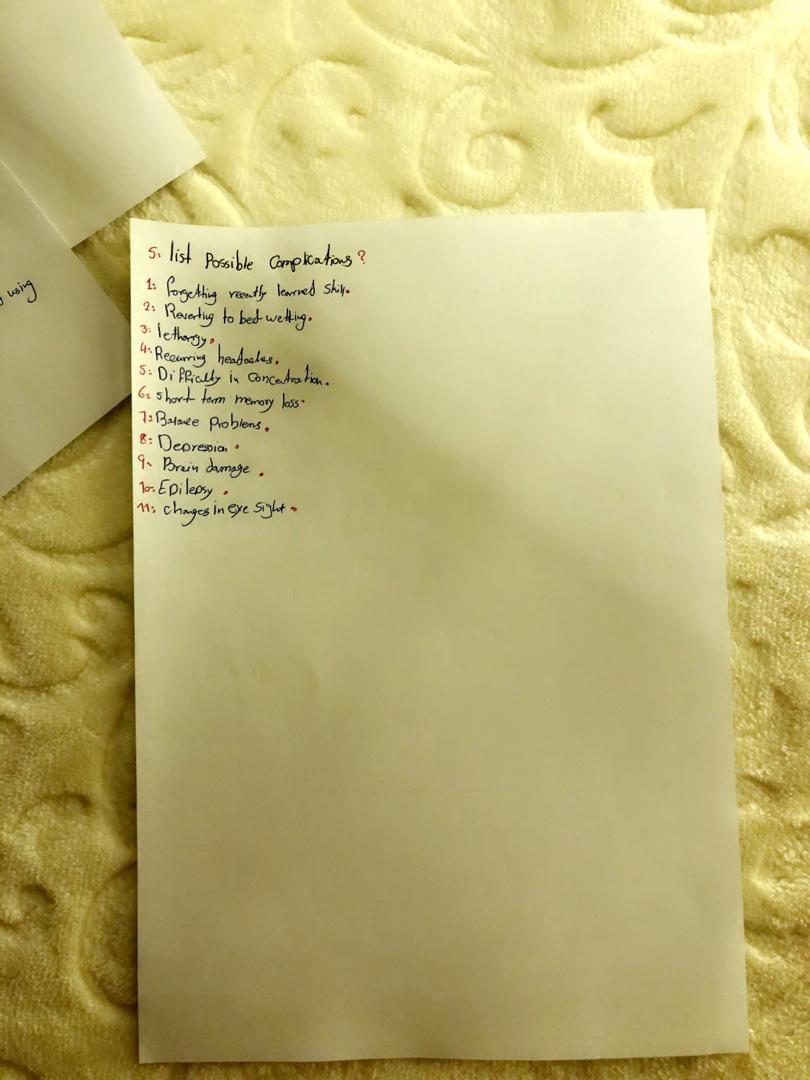 5. list Possible Complications?
1: Forgetting recently learned skill.
2: Reverting to bed-wetting.
3: lethargy.
4. Recurring headaches.
5: Difficulty in Concentration.
6: short term memory loss.
7: Balance Problems.
8: Depression.
9. Brain damage.
10: Epilepsy.
11: changes in eye sight.
using